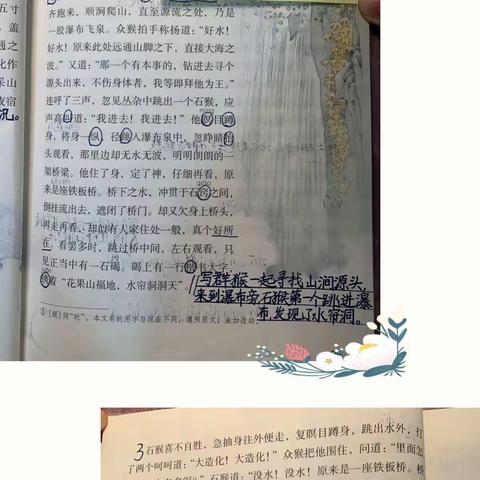 五寸
，盖
通之
化作
果山
夜宿
况。
齐跑来，顺涧爬山，直至源流之处，乃是
一股瀑布飞泉。众猴拍手称扬道：“好水！
好水！原来此处远通山脚之下，直接大海之
波。”又道：“那一个有本事的，钻进去寻个
源头出来，不伤身体者，我等即拜他为王。”
连呼了三声，忽见丛杂中跳出一个石猴，应
声高叫道：“我进去！我进去！”他瞑目蹲
身，将身一纵，径跳入瀑布泉中，忽睁睛抬
头观看，那里边却无水无波，明明朗朗的一
架桥梁。他住了身，定了神，仔细再看，原
来是座铁板桥。桥下之水，冲贯于石窍之间，
倒挂流出去，遮闭了桥门。却又欠身上桥头，
再走再看，却似有人家住处一般，真个好所
在。看罢多时，跳过桥中间，左右观看，只
见正当中有一石碣。碣上有一行楷书大字，
镌着“花果山福地，水帘洞洞天”。
写群猴一起寻找山涧源头，
来到瀑布旁石猴第一个跳进瀑
布，发现了水帘洞。
①［顽］同“玩”。本文有的用字与现在不同，遵照原文，未加改动。
3石猴喜不自胜，急抽身往外便走，复瞑目蹲身，跳出水外，打
了两个呵呵道：“大造化！大造化！”众猴把他围住，问道：“里面怎
石猴道：“没水！没水！原来是一座铁板桥。桥